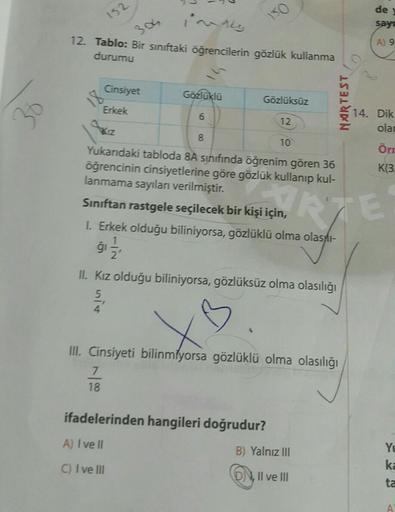 152
150
12. Tablo: Bir sınıftaki öğrencilerin gözlük kullanma
durumu
14
Cinsiyet Gözlüklü Gözlüksüz
18 Erkek 6 12
18 Kız 8 10
36
Yukarıdaki tabloda 8A sınıfında öğrenim gören 36
öğrencinin cinsiyetlerine göre gözlük kullanıp kul-
lanmama sayıları verilmiştir.
Sınıftan rastgele seçilecek bir kişi için,
I. Erkek olduğu biliniyorsa, gözlüklü olma olasılı-
ğı 1/2,
II. Kız olduğu biliniyorsa, gözlüksüz olma olasılığı
5/4,
III. Cinsiyeti bilinmiyorsa gözlüklü olma olasılığı
7/18
ifadelerinden hangileri doğrudur?
A) I ve II
B) Yalnız III
C) I ve III
D) I, II ve III
MARTEST
de
sayı
A) 9
14. Dik
olar
Örn
K(3
Yu
ka
ta
A